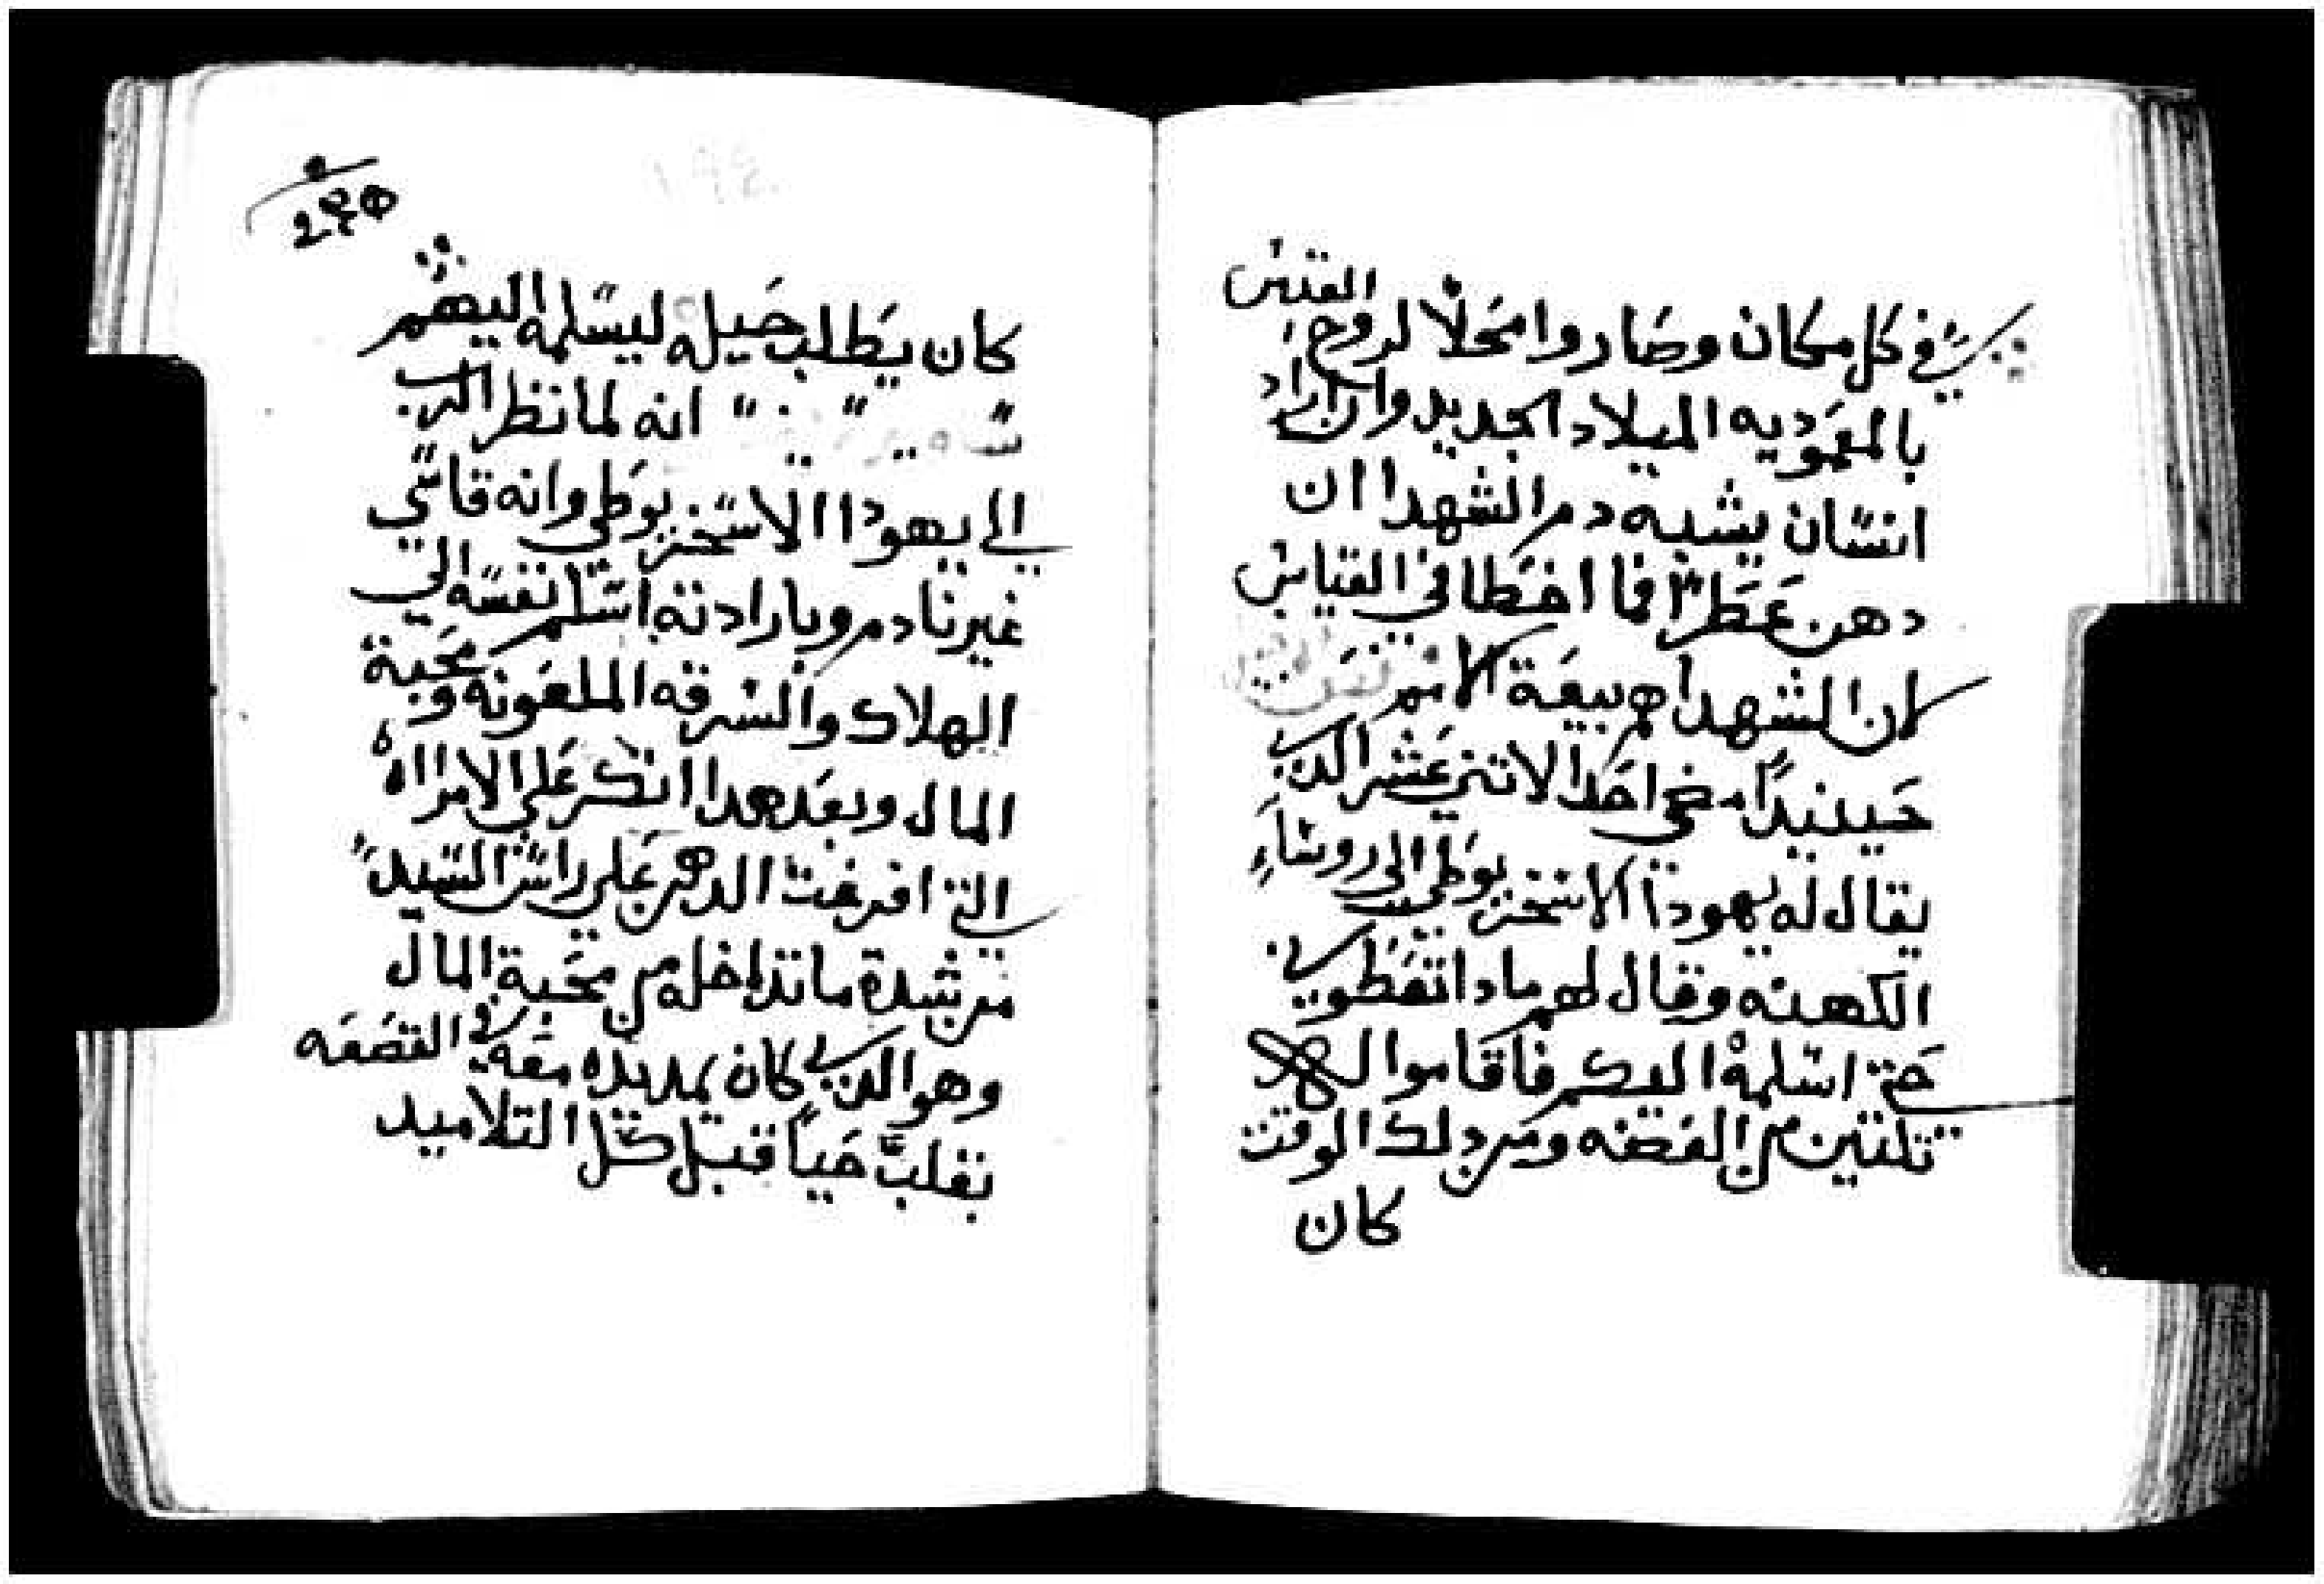 في كل مكان وصاروا محلاً لروح القدس
بالمعموديه الميلاد الجديد وان اراد
انسان يشبه دم الشهدا ان
دهن عطرا فما اخطا في القياس
لان الشهدا هم بيعة
حينيداً مضي احد الاتني عشر الدي
يقال له يهودا الاسخريوطي الي روساء
الكهنه وقال لهم مادا تعطوني
حتي اسلمه اليكم فاقاموا له
تلتين من الفضه ومن دلك الوقت
كان
٢٩٥
كان يطلب حيله ليسلمه اليهم
انه لما نظر الرب
الي يهودا الاسخريوطي وانه قاسي
غير نادم وبارادته اسلم نفسه الي
الهلاك والسرقه الملعونه ومحبة
المال وبعد هدا انكر علي الامراه
التي افرغت الدهن علي راس السيد
من شدة ما تداخله من محبة المال
وهو الدي كان يمد يده معه في القصعه
بغلب حياً قبل كل التلاميد